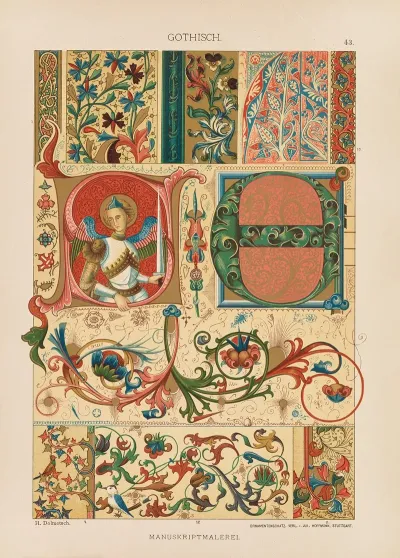 GOTHISCH.
43.
H. Dolmetsch.
VERL. v. JUL. HOFFMANN, STUTTGART.
MANUSKRIPTMALEREI.